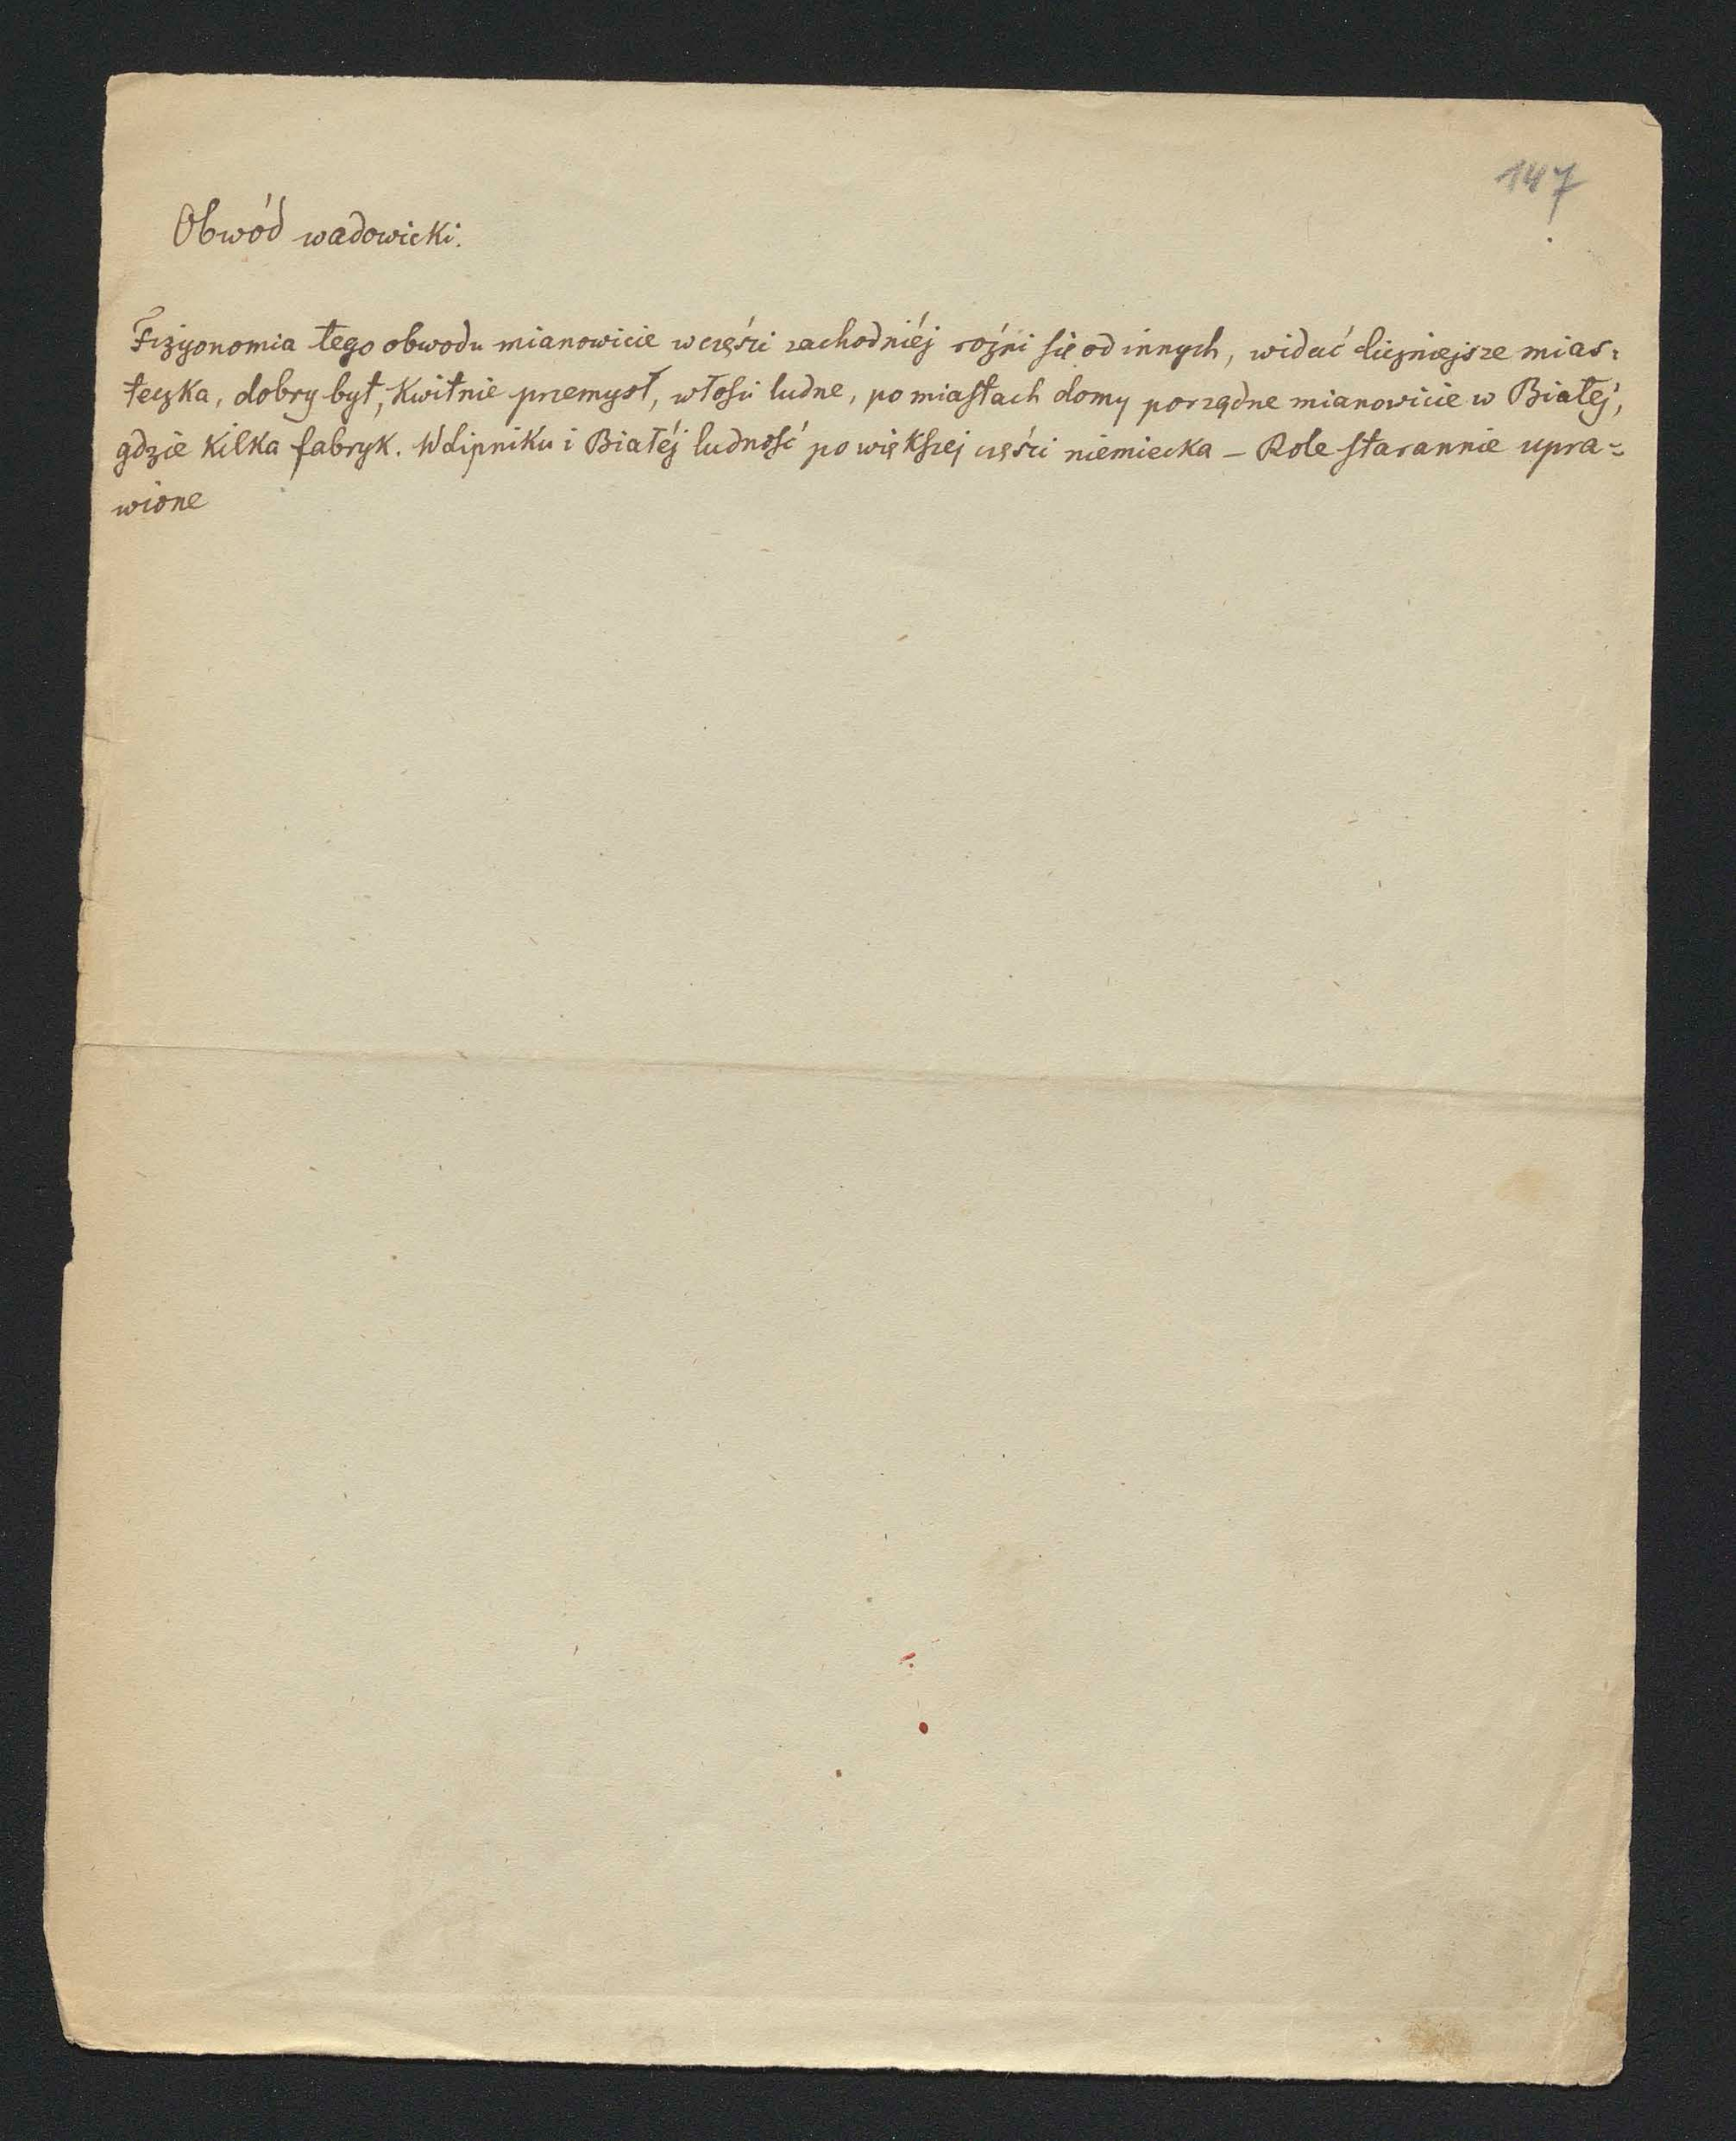 147
Obwód wadowicki.
Fizyonomia tego obwodu mianowicie w części zachodniéj rożni się od innych, widać liczniejsze mias=
teczka, dobry byt, kwitnie przemysł, włości ludne, po miastach domy porządne mianowicie w Białej,
gdzie kilka fabryk. W Lipniku i Białéj ludność po większej części niemiecka — Role starannie upra=
wione